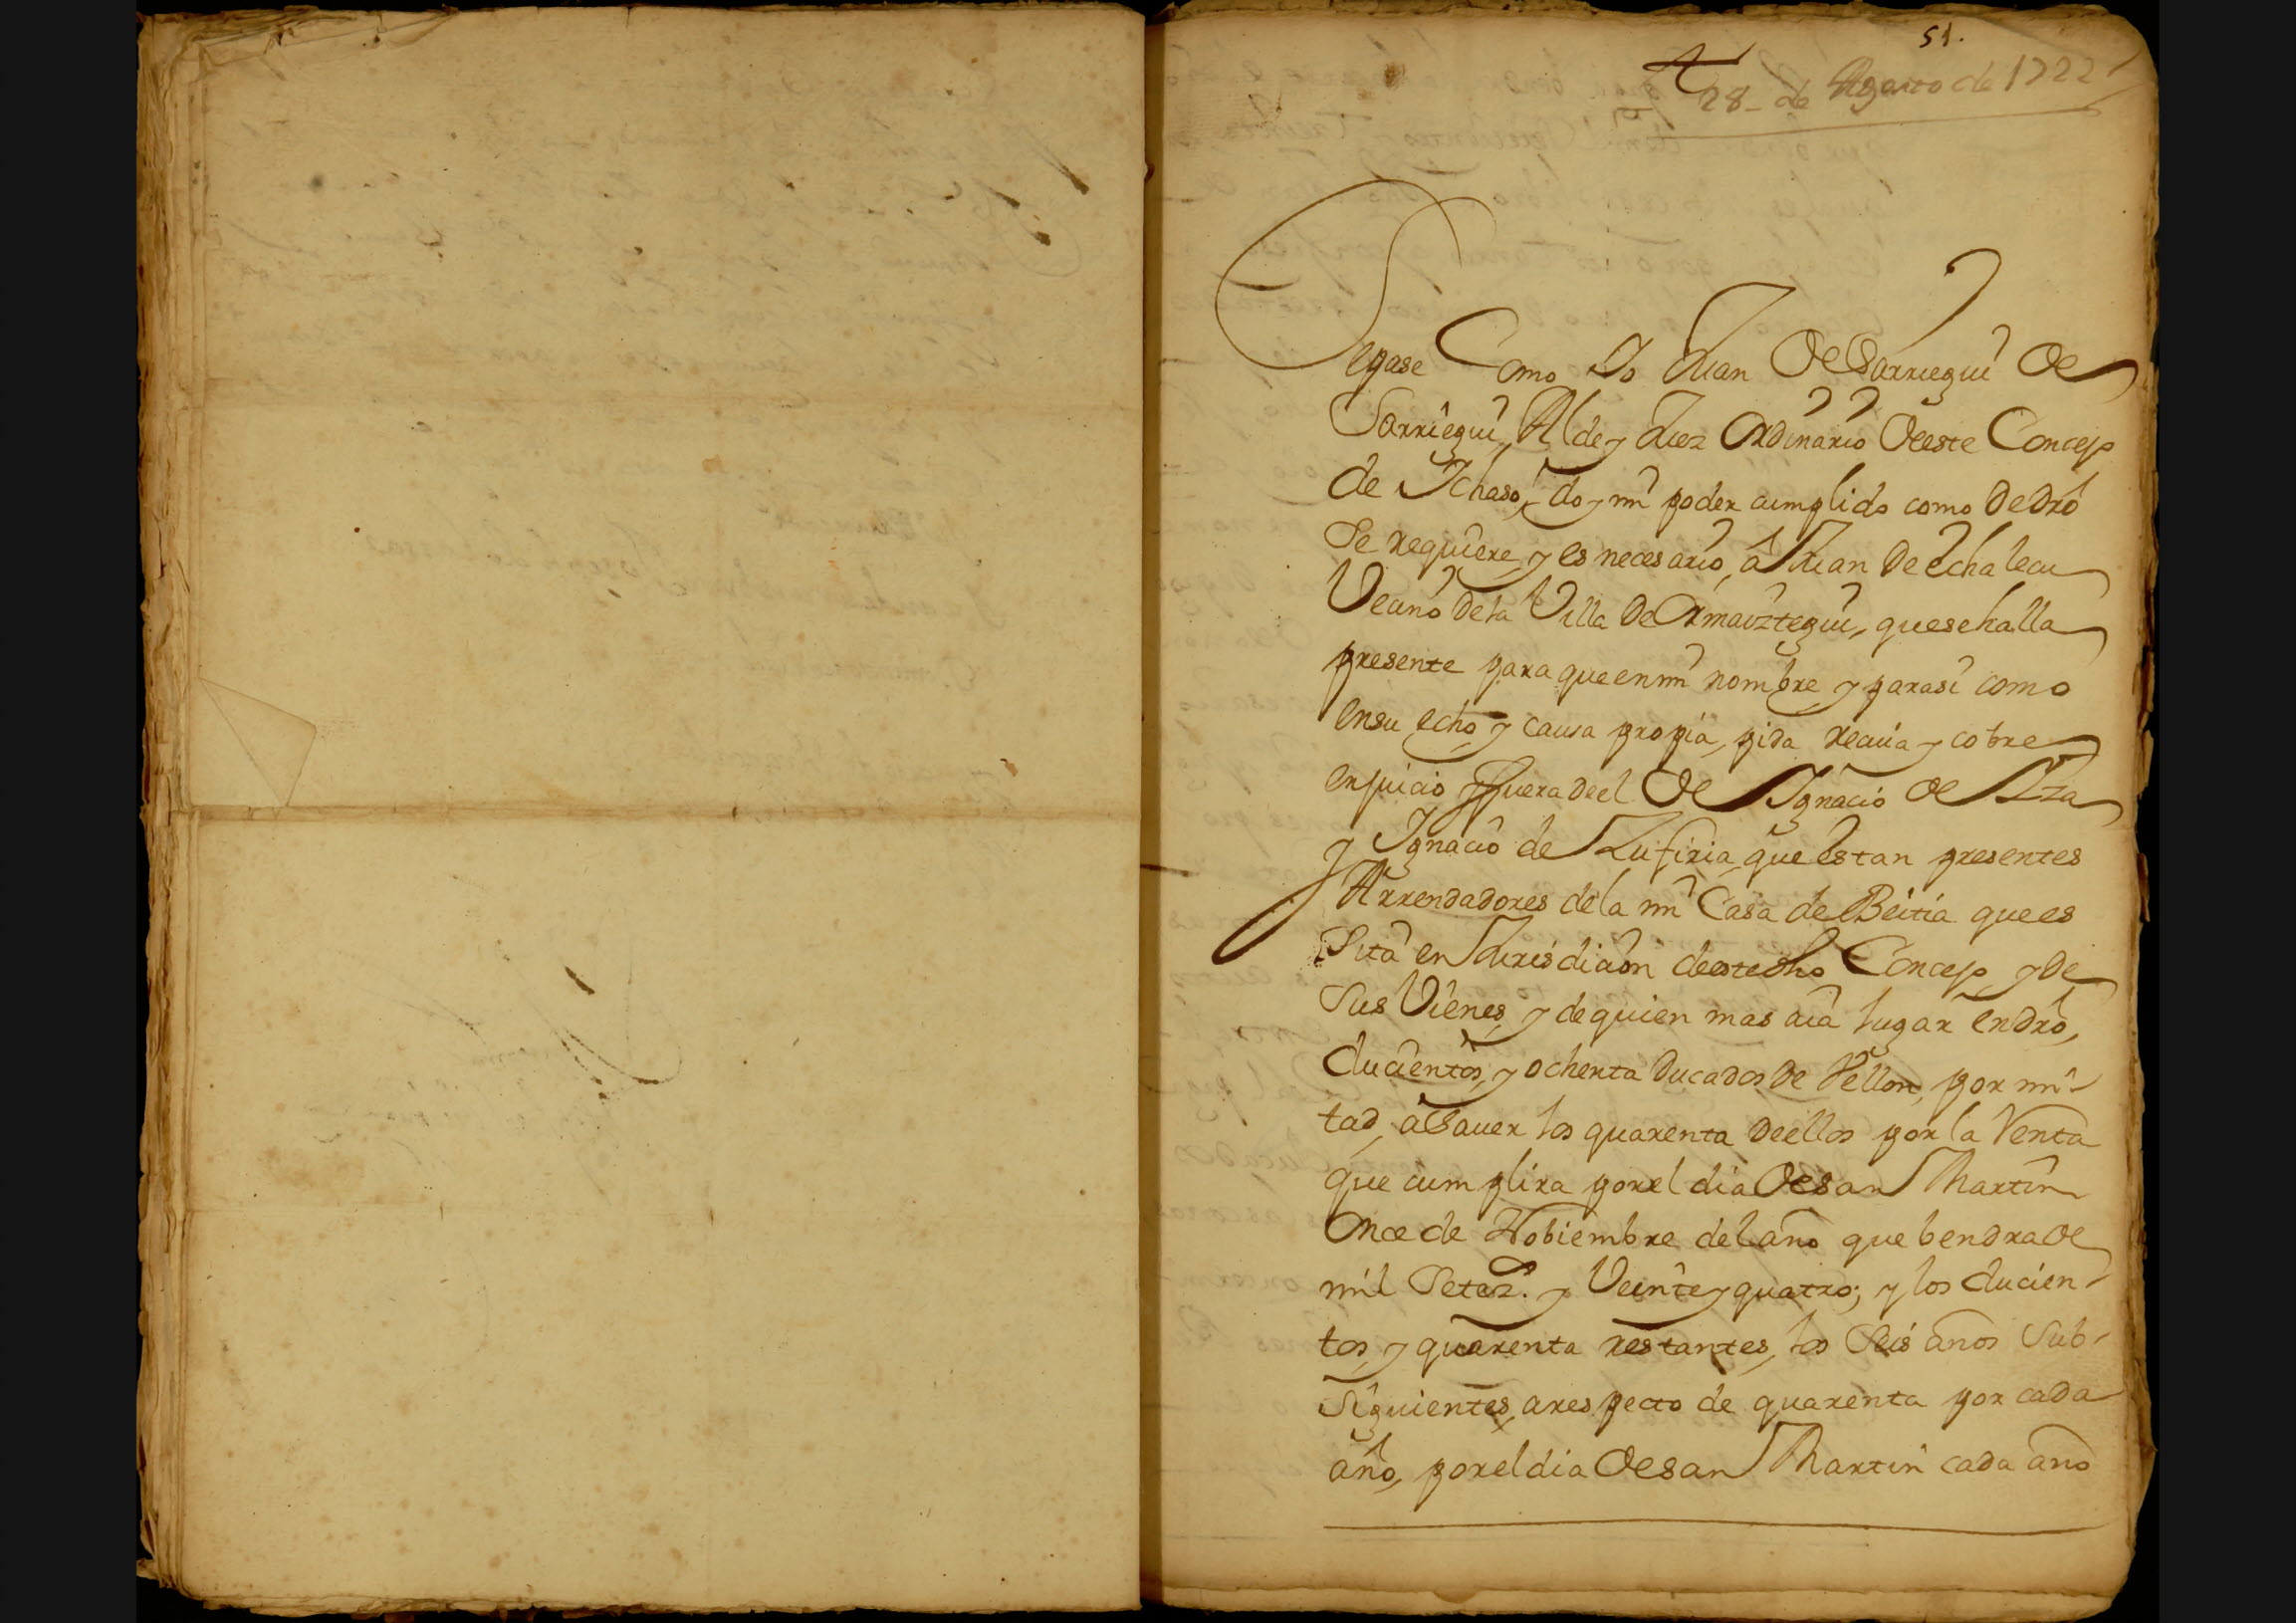 51.
28 - de Agosto de 1722
Sepase Como Yo Juan De Sarriegui De
Sarriegui, Alde y Juez Ordinario Deeste Concejo
de Ichaso, doy mi poder cumplido como De dro
Se requiere, y es necesario, â Juan De Echalecu
Vecino De la Villa De Ormaiztegui, que se halla
presente para que en mi nombre, y para si como
en su echo, y causa propia, pida reciua y cobre
en juicio y fuera de el De Ignacio de Yza
y Ignacio de Zufiria que estan presentes
Arrendadores de la mi Casa de Beitia que es
Sita en Jurisdicion deeste dho Concejo, y De
Sus Vienes, y de quien mas aia lugar en dro,
ducientos, y ochenta Ducados De Vellon, por mi-
tad, â Sauer los quarenta De ellos por la Renta
que cumplira por el dia De San Martin
Once de Nobiembre del año que bendra De
mil Setez.s y Veinte y quatro; y los ducien-
tos, y quarenta restantes, los Seis años Sub-
Siguientes, a respecto de quarenta por cada
año, por el dia De San Martin cada año